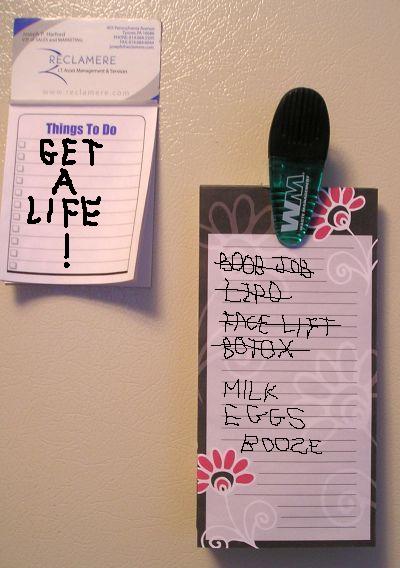 Joseph P. Harford
VP of SALES and MARKETING
RECLAMERE
I.T. Asset Management & Services
www.reclamere.com
Things To Do
GET
A
LIFE
!
WM
BOOB JOB
LIPO
FACE LIFT
BOTOX
MILK
EGGS
BOOZE